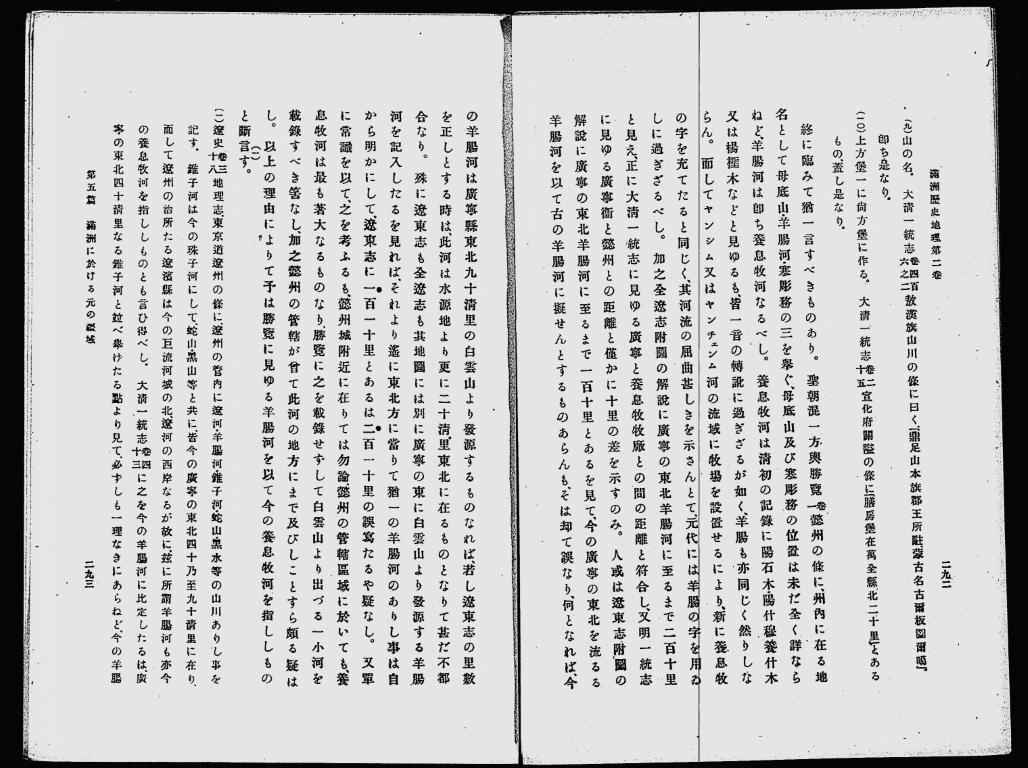 滿洲歷史地理第二卷
二九二
(九)山の名。大淸一統志卷四百六之二敖漢旗山川の條に曰く、「鼎足山本旗郡王所駐、蒙古名古爾板圖爾噶」
卽ち是なり。
(二)上方堡一に尙方堡に作る。大淸一統志卷二十五宣化府關隘の條に「膳房堡在萬全縣北二十里」とある
もの蓋し是なり。
終に臨みて猶一言すべきものあり。聖朝混一方輿勝覽卷一懿州の條に、州內に在る地
名として母底山羊腸河・塞彫務の三を擧ぐ、母底山及び塞彫務の位置は未だ全く詳なら
ねど、羊腸河は卽ち養息牧河なるべし。養息牧河は淸初の記錄に陽石木・陽什穆・養什木
又は楊檉木などと見ゆるも、皆一音の轉訛に過ぎざるが如く、羊腸も亦同じく然りしな
らん。而してヤンシム又はヤンチェンム河の流域に牧場を設置せるにより、新に養息牧
の字を充てたると同じく、其河流の屈曲甚しきを示さんとて、元代には羊腸の字を用ゐ
しに過ぎざるべし。加之全遼志附圖の解說に廣寧の東北羊腸河に至るまで二百十里
と見え、正に大淸一統志に見ゆる廣寧と養息牧牧廠との間の距離と符合し、又明一統志
に見ゆる廣寧衞と懿州との距離と僅かに十里の差を示すのみ。人或は遼東志附圖の
解說に廣寧の東北羊腸河に至るまで一百十里とあるを見て、今の廣寧の東北を流るる
羊腸河を以て古の羊腸河に擬せんとするものあらんも、そは却て誤なり、何となれば、今
の羊腸河は廣寧縣東北九十淸里の白雲山より發源するものなれば、若し遼東志の里數
を正しとする時は、此河は水源地より更に二十淸里東北に在るものとなりて甚だ不都
合なり。殊に遼東志も全遼志も其地圖には別に廣寧の東に白雲山より發源する羊腸
河を記入したるを見れば、それより遙に東北方に當りて猶一の羊腸河のありし事は自
から明かにして、遼東志に一百一十里とあるは二百一十里の誤寫たるや疑なし。又單
に常識を以て、之を考ふるも、懿州城附近に在りては勿論懿州の管轄區域に於いても、養
息牧河は最も著大なるものなり、勝覽に之を載錄せずして白雲山より出づる一小河を
載錄すべき筈なし、加之懿州の管轄が曾て此河の地方にまで及びしことすら頗る疑は
し。以上の理由によりて予は勝覽に見ゆる羊腸河を以て今の養息牧河を指ししもの
と斷言す。(一)
(一)遼史卷三十八地理志東京道遼州の條に遼州の管內に遼河・羊腸河・錐子河・蛇山・黑山・黑水等の山川ありし事を
記す。錐子河は今の珠子河にして、蛇山・黑山等と共に、皆今の廣寧の東北四十乃至九十淸里に在り、
而して遼州の治所たる遼濱縣は今の巨流河城の北、遼河の西岸なるが故に、玆に所謂羊腸河も亦今
の養息牧河を指ししものとも言ひ得べし。大淸一統志卷四十三に之を今の羊腸河に比定したるは、廣
寧の東北四十淸里なる錐子河と竝べ擧げたる點より見て、必ずしも一理なきにあらねど、今の羊腸
第五篇　滿洲に於ける元の疆域
二九三